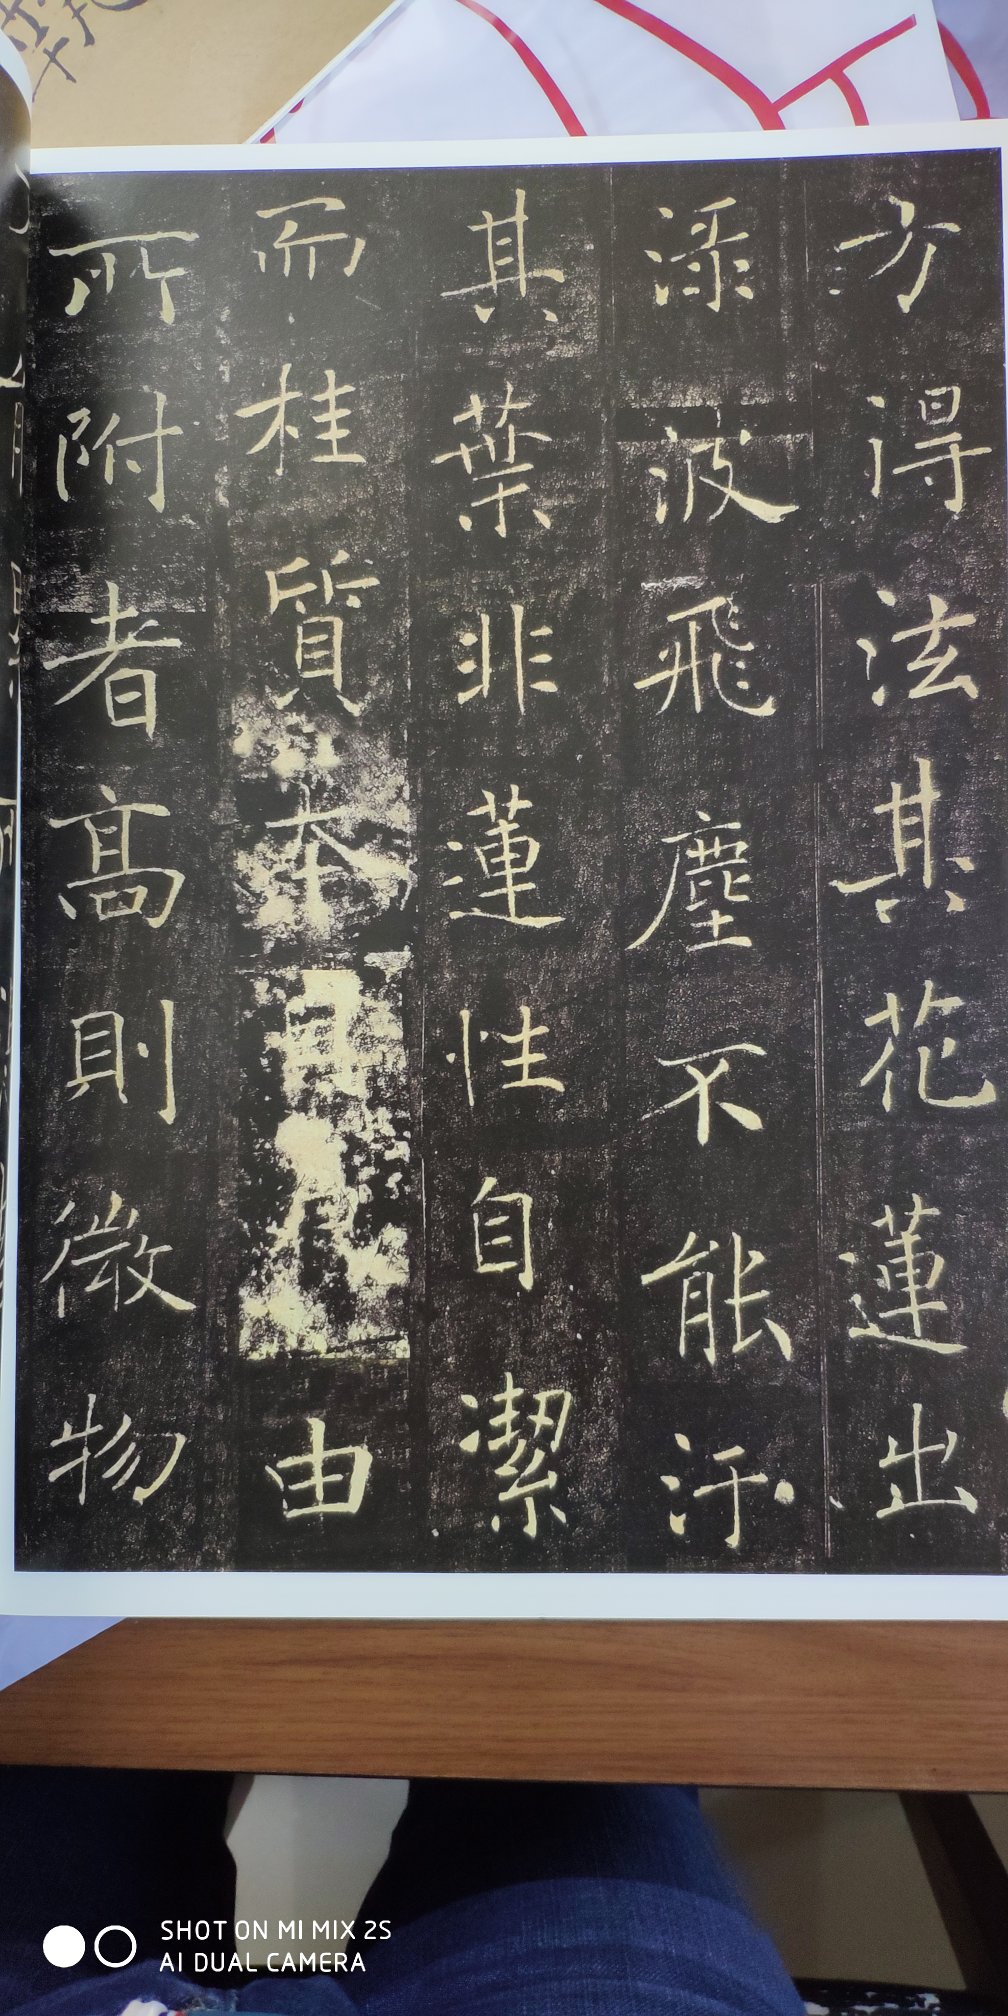 方得泫其花蓮出
渌波飛塵不能汙
其葉非蓮性自潔
而桂質本由
所附者高則微物
SHOT ON MI MIX 2S
AI DUAL CAMERA